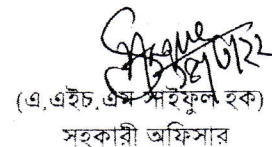 (এ,এইচ,এম সাইফুল হক)
সহকারী অফিসার